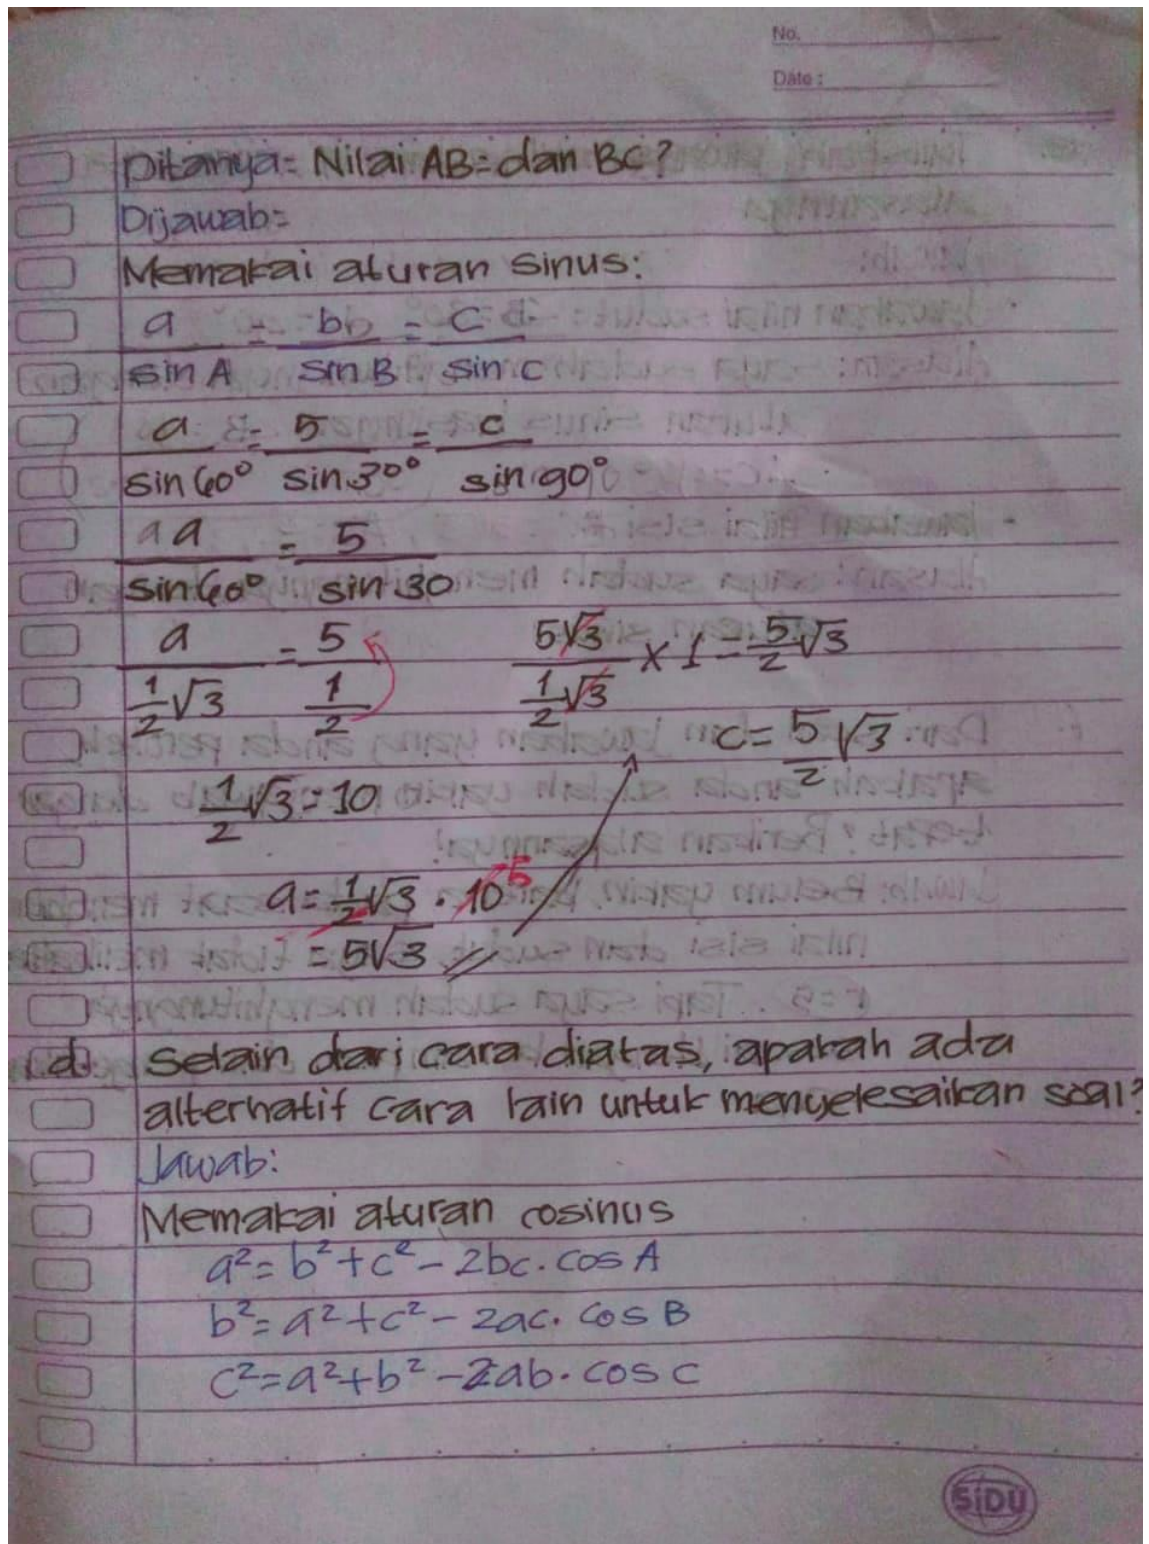 No.
Date :
Ditanya = Nilai AB = dan BC?
Dijawab =
Memakai aturan sinus:
a/sin A = b/sin B = c/sin C
a/sin 60° = 5/sin 30° = c/sin 90°
a/sin 60° = 5/sin 30
a/(1/2 √3) = 5/(1/2)
5√3/(1/2 √3) × 1 = 5/2 √3
c = 5/2 √3
1/2 √3 = 10
a = 1/2 √3 · 10 5
= 5√3 //
d. Selain dari cara diatas, apakah ada
alternatif cara lain untuk menyelesaikan soal?
Jawab:
Memakai aturan cosinus
a² = b² + c² - 2bc. cos A
b² = a² + c² - 2ac. cos B
c² = a² + b² - 2ab. cos c
SiDU